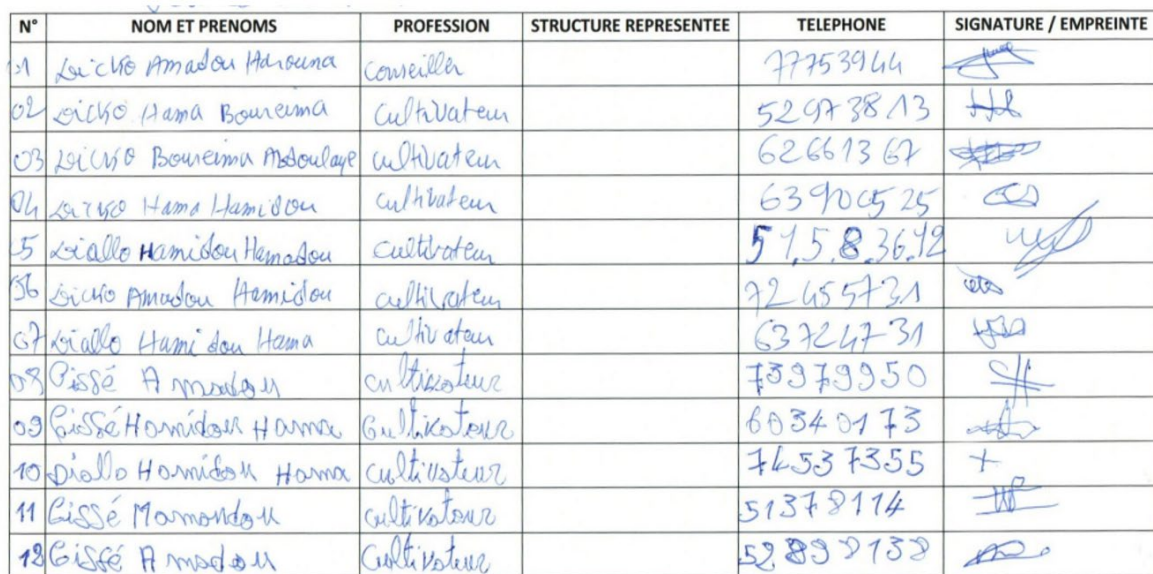 N° NOM ET PRENOMS PROFESSION STRUCTURE REPRESENTEE TELEPHONE SIGNATURE / EMPREINTE
01 Dicko Amadou Harouna conseiller 77753944
02 Dicko Hama Boureima cultivateur 52973813
03 Dicko Boureima Abdoulaye cultivateur 62661367
04 Dicko Hama Hamidou cultivateur 63900525
05 Diallo Hamidou Hamadou cultivateur 51.5.8.36.12
06 Dicko Amadou Hamidou cultivateur 72455731
07 Diallo Hamidou Hama cultivateur 63724731
08 Cissé Amadou cultivateur 73979950
09 Cissé Hamidou Hama Cultivateur 60340173
10 Diallo Hamidou Hama cultivateur 74537355 +
11 Cissé Mamoudou cultivateur 51378114
12 Cissé Amadou Cultivateur 52898138